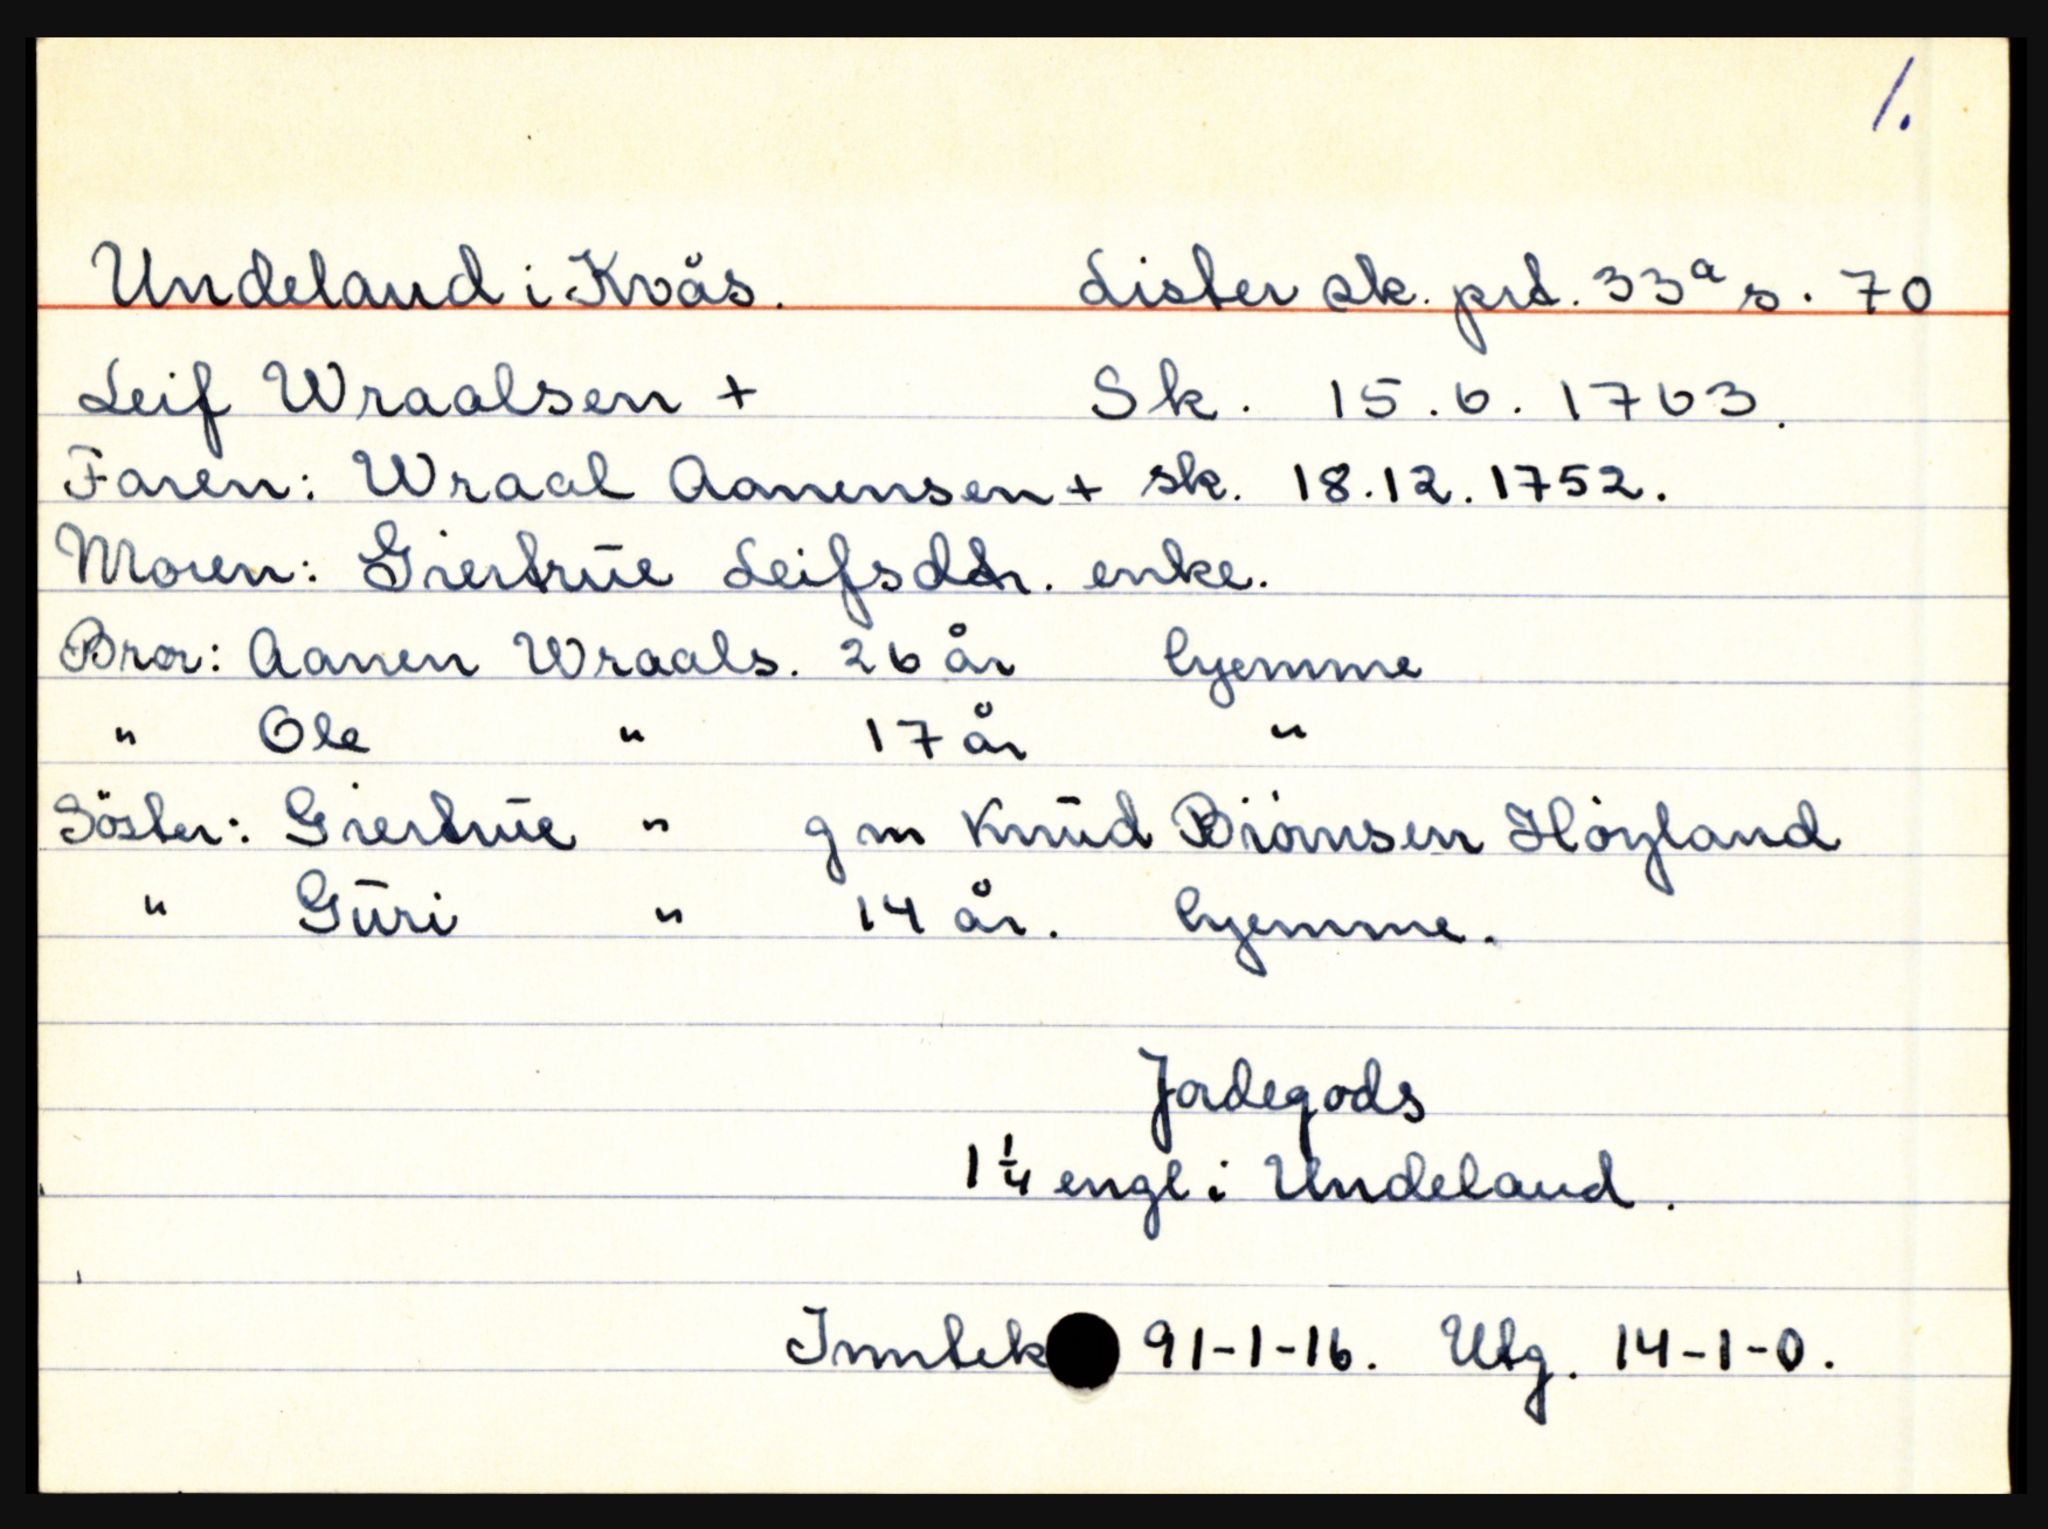 1.
Undeland i Kvås. Lister sk. prt. 33ª s. 70
Leif Wraalsen + Sk. 15.6.1763.
Faren: Wraal Aanensen + sk. 18.12.1752.
Moren: Giertrūe Leifsdtr. enke.
Bror: Aanen Wraals. 26 år hjemme
" Ole " 17 år "
Söster: Giertrūe " g m Knūd Biörnsen Höyland
" Gūri " 14 år. hjemme.
Jordegods
1 1/4 engl i Undeland.
Inntek 91-1-16. Utg. 14-1-0.